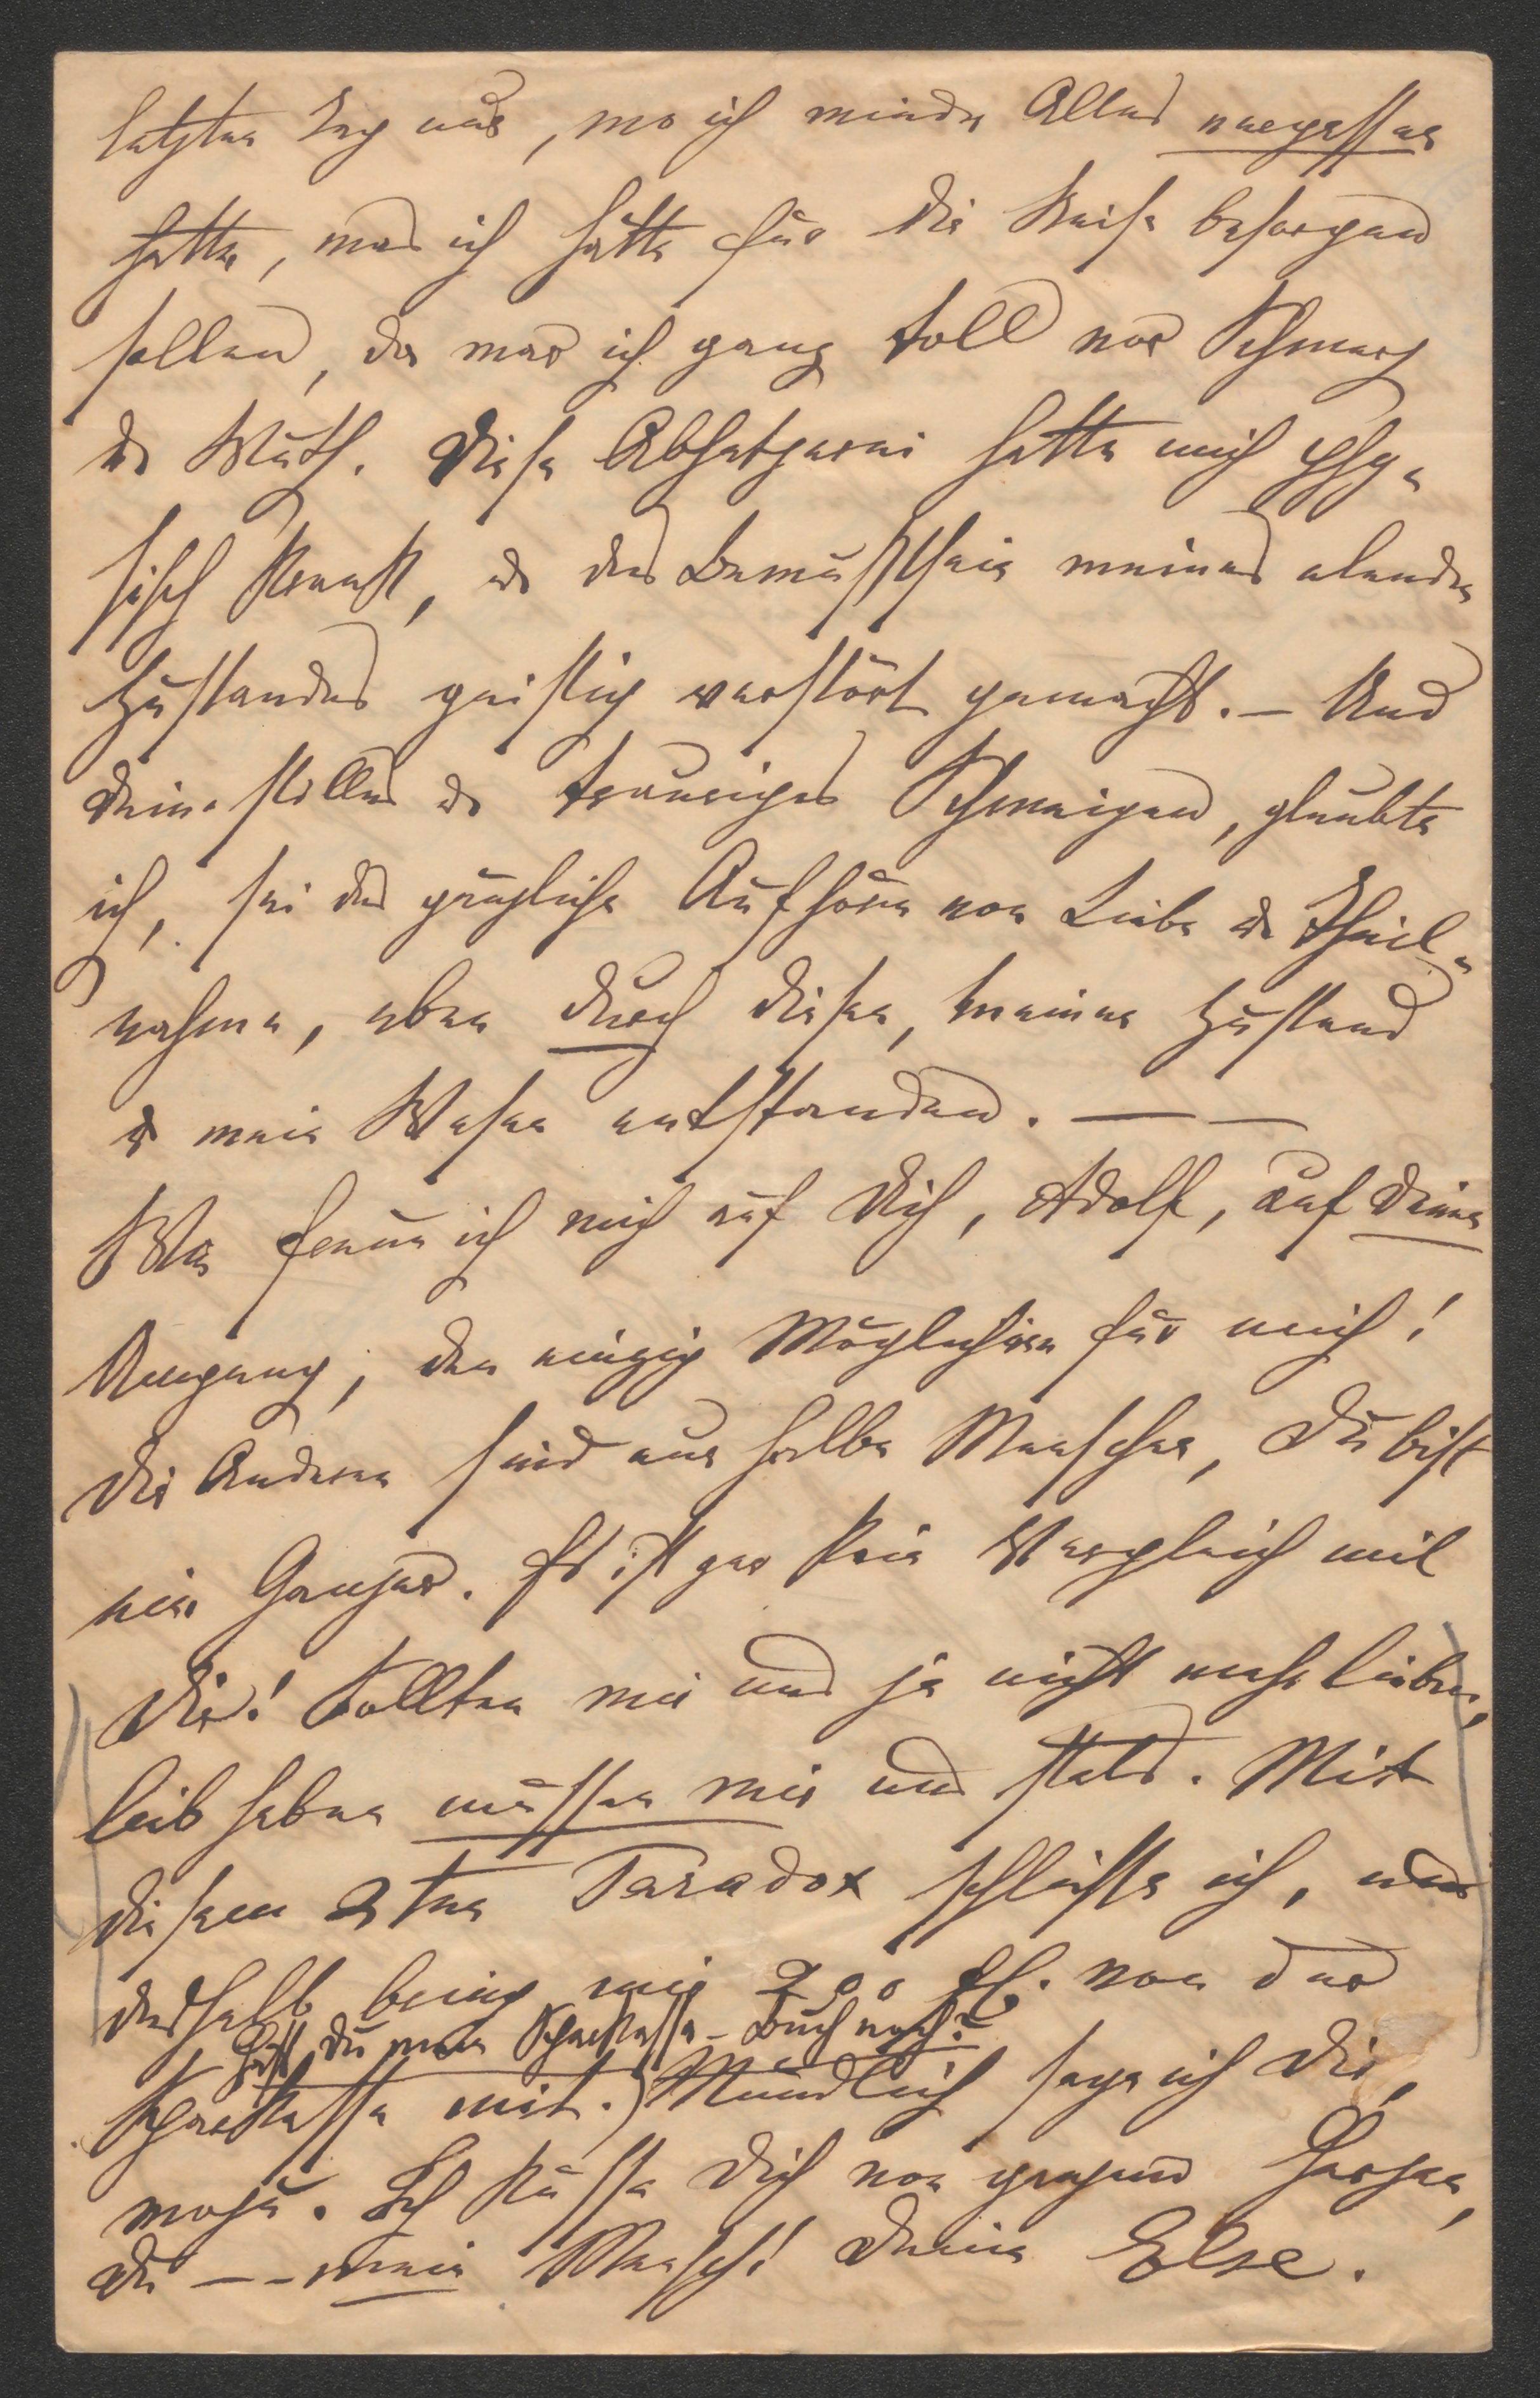 letzten Tag uns, wo ich wieder Alles vergessen
hatte, was ich hätte für die Reise besorgen
sollen, da war ich ganz toll vor Schmerz
u Wuth. Diese Abhetzerei hatte mich phy-
sisch krank, u das Bewußtsein meines elenden
Zustandes geistig verstört gemacht. – Und
Dein stilles u trauriges Schweigen, glaubte
ich, sei das gänzliche Aufhören von Liebe u Theil-
nahme, eben durch diesen, meinen Zustand
u mein Wesen entstanden. — —
Wie freue ich mich auf Dich, Adolf, auf Deinen
Umgang, den einzig Möglichen für mich!
Die Anderen sind nur halbe Menschen, Du bist
ein Ganzer. Es ist gar kein Vergleich mit
Dir! Sollten wir uns ja nicht mehr lieben,
lieb haben müssen wir uns stets. Mit
diesem 2ten Paradox schließe ich, und
deshalb bring mir 200 fl. von der
Hast Du mein Sparkassa-Buch noch?
Sparkassa mit.) Mündlich sage ich Dir,
wozu. Ich küsse Dich von ganzem Herzen,
Du – – mein Mensch! Deine Else.